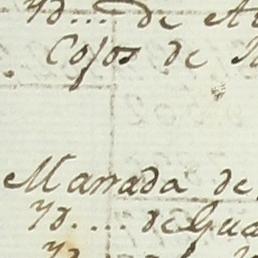 Yd... de A
Cojos de
Manada de
Yd.... de Gua
Yd